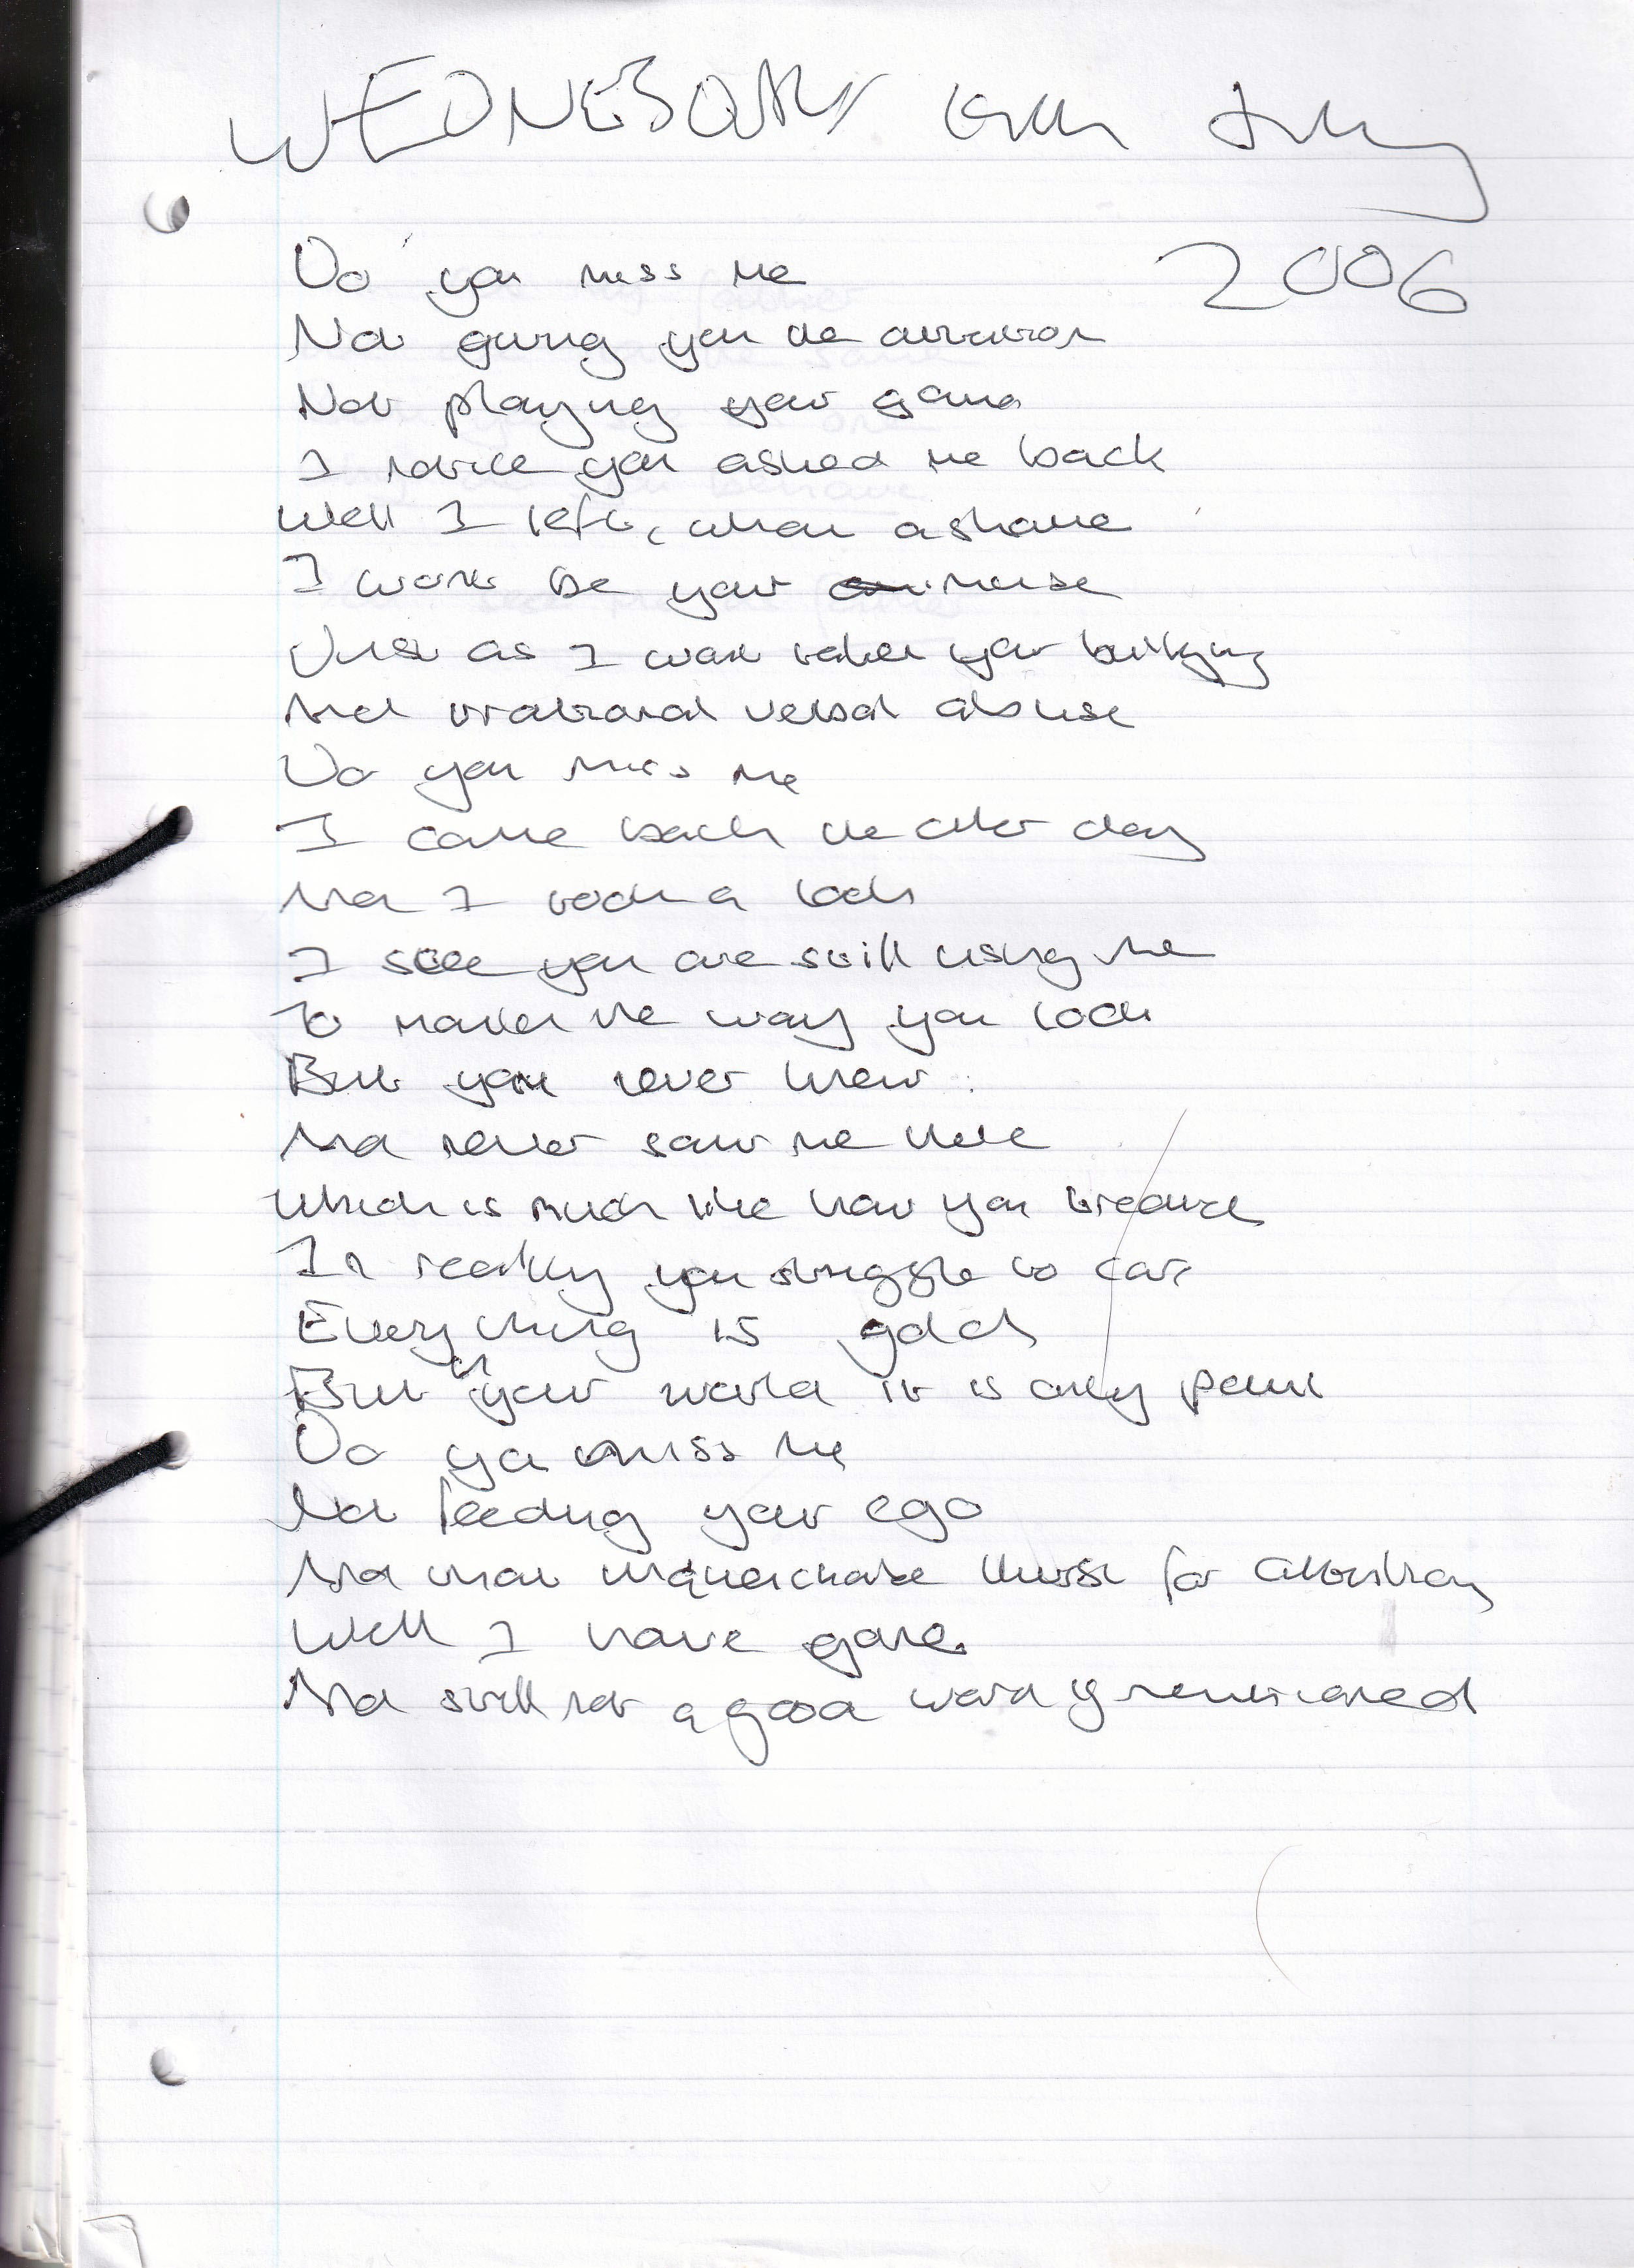 WEDNESDAY July
2006
Do you miss me
Not giving you the attention
Not playing your game
I notice you asked me back
Well I left, what a shame
I wont be your muse
Just as I wont take your bullying
And irrational verbal abuse
Do you miss me
I came back the other day
And I took a look
I see you are still using me
To make the way you look
But you never knew
And never saw me there
Which is much like how you breathe
In reality you struggle to care
Everything is gold
But in your world it is only paint
Do you miss me
Not feeding your ego
And that unquenchable thirst for attention
Well I have gone
And still not a good word is mentioned